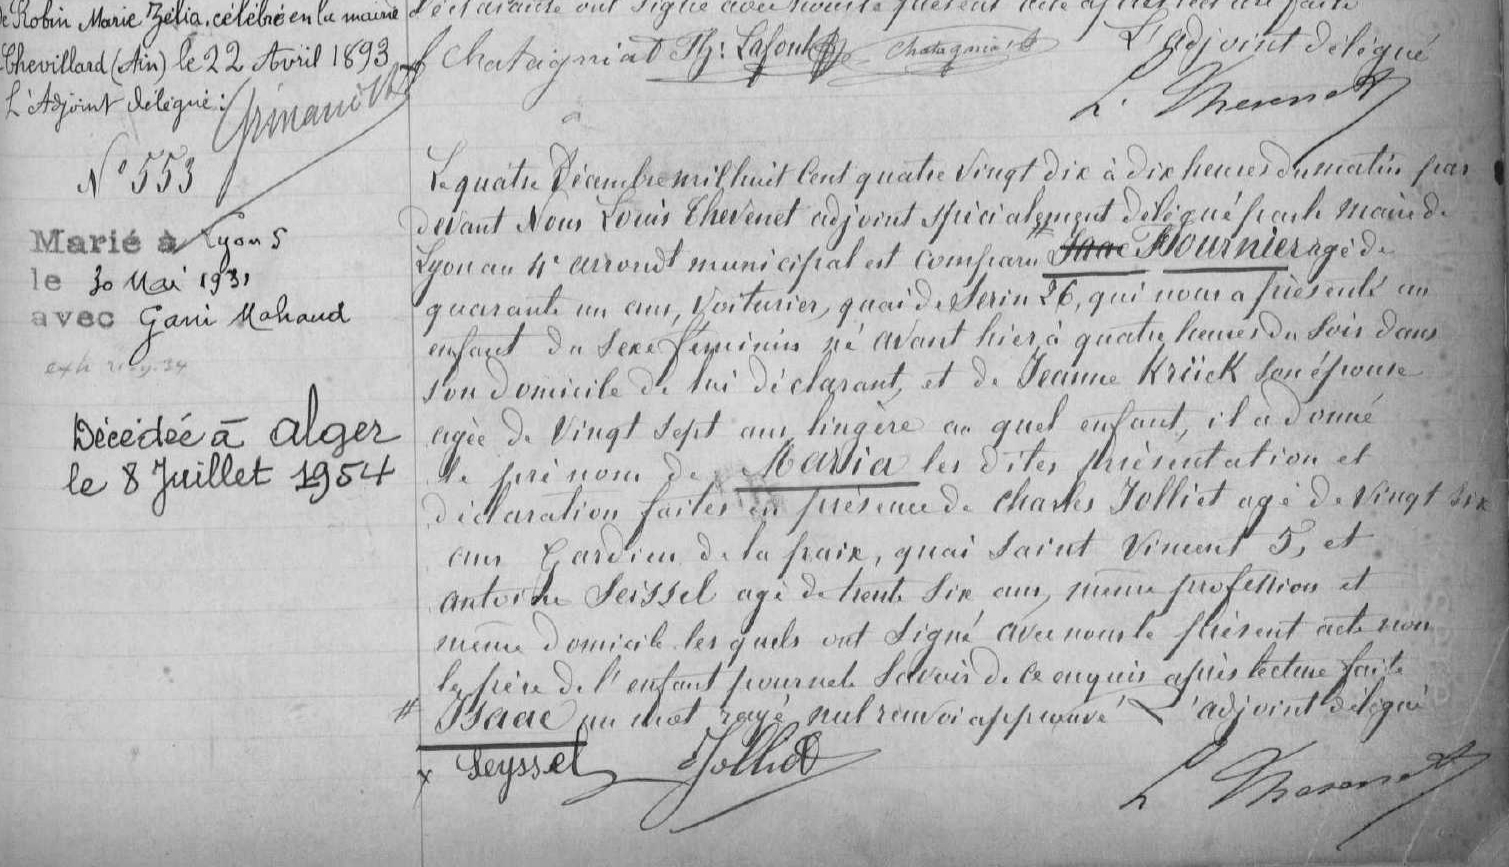 de Robin Marie Zélia, célébré en la mairie
Chevillard (Ain) le 22 Avril 1893
L'Adjoint délégué :
N° 553
Marié à Lyon 5
le 30 Mai 1931
avec Gani Mohand
Décédée à Alger
le 8 Juillet 1954
Chatagniat Ph: Lafont Chatagniat L'adjoint délégué
L. Thevenet
Le quatre Décembre mil huit cent quatre vingt dix à dix heures du matin par
devant Nous Louis Thevenet adjoint spécialement délégué par le maire de
Lyon au 4e arrondt municipal est comparu # Isaac Fournier agé de
quarante un ans, Voiturier, quai de Serin 26, qui nous a présenté un
enfant du sexe féminin né avant hier à quatre heures du soir dans
son domicile de lui déclarant, et de Jeanne Krück son épouse
agée de vingt sept ans lingère au quel enfant, il a donné
le prénom de Maria les dites présentation et
déclaration faites en présence de Charles Jolliet agé de vingt six
ans Gardien de la paix, quai Saint Vincent 5, et
antoine Seissel agé de trente six ans, même profession et
même domicile les quels ont signé avec nous le présent acte non
le père de l'enfant pour ne le savoir de ce enquis après lecture faite
# Isaac un mot rayé nul renvoi approuvé L'adjoint délégué
x Seyssel Jolliet
L. Thevenet